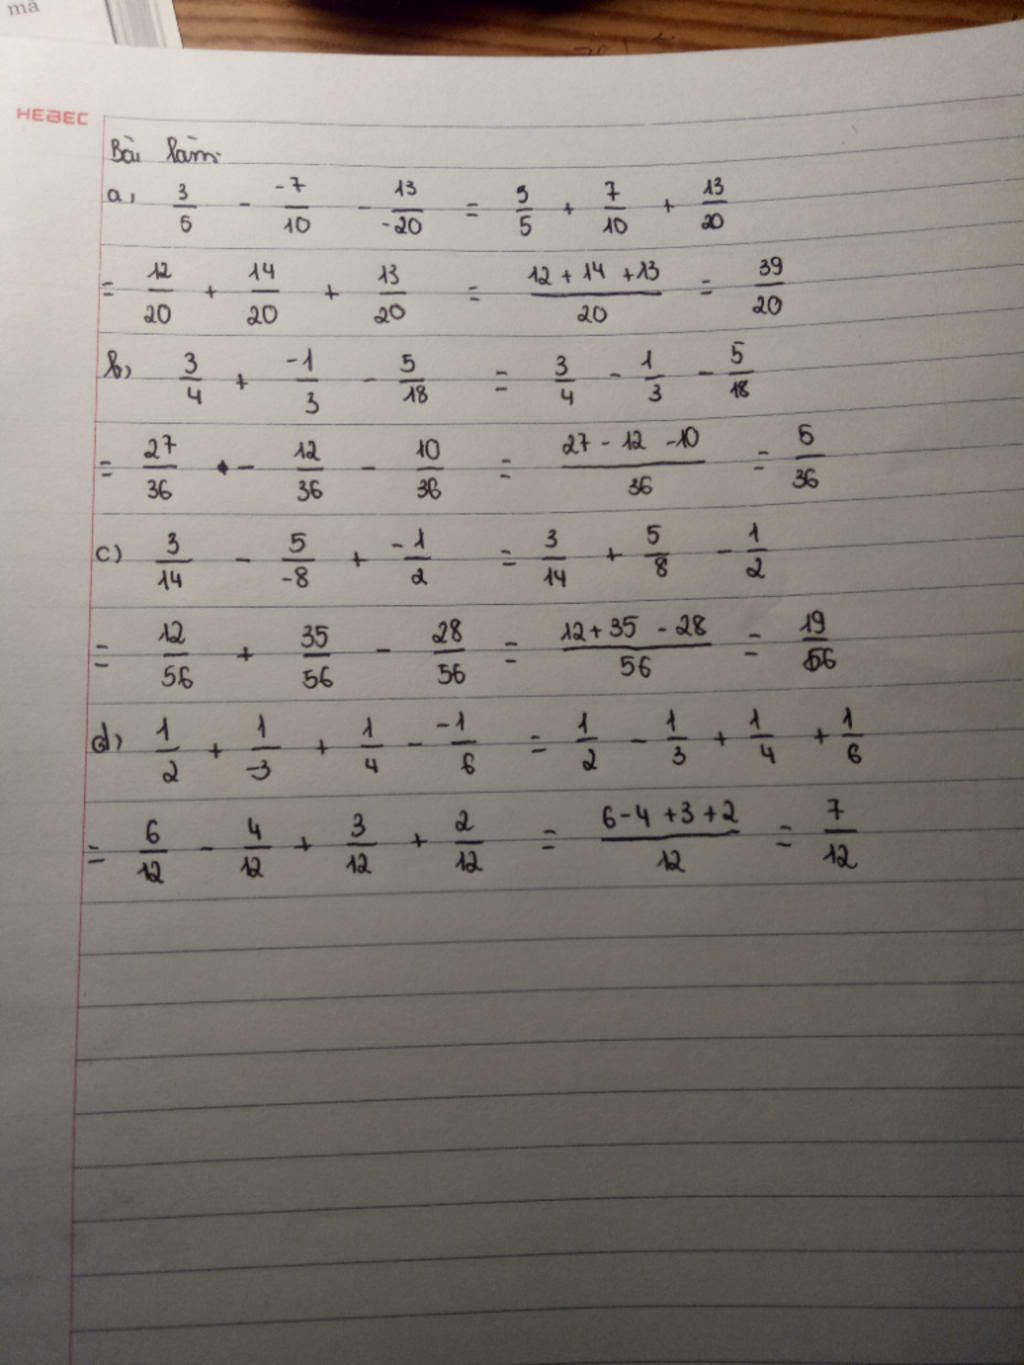 mã
HEBEC
Bài làm:
a, 3/5 - -7/10 - 13/-20 = 3/5 + 7/10 + 13/20
= 12/20 + 14/20 + 13/20 = 12 + 14 + 13/20 = 39/20
b, 3/4 + -1/3 - 5/18 = 3/4 - 1/3 - 5/18
= 27/36 - 12/36 - 10/36 = 27 - 12 - 10/36 = 5/36
c) 3/14 - 5/-8 + -1/2 = 3/14 + 5/8 - 1/2
= 12/56 + 35/56 - 28/56 = 12 + 35 - 28/56 = 19/56
d, 1/2 + 1/-3 + 1/4 - -1/6 = 1/2 - 1/3 + 1/4 + 1/6
= 6/12 - 4/12 + 3/12 + 2/12 = 6 - 4 + 3 + 2/12 = 7/12